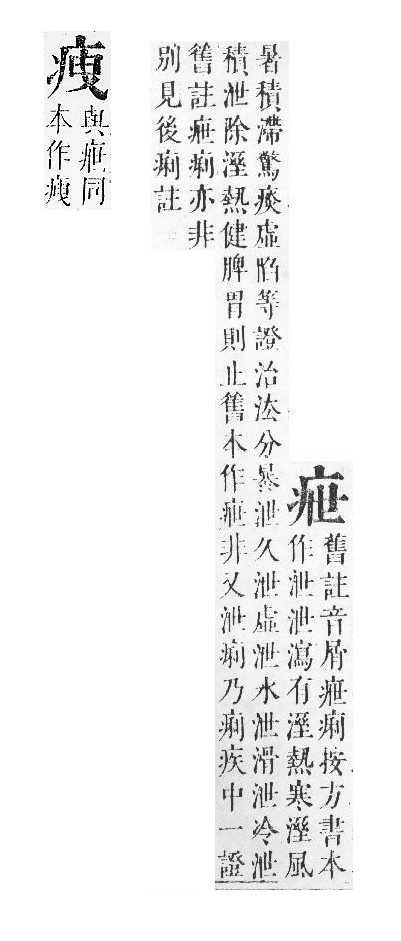 疶
舊註音屑疶痢按方書本
作泄泄瀉有溼熱寒溼風
暑積滯驚痰虛陷等證治法分暴泄久泄虛泄水泄滑泄冷泄
積泄除溼熱健脾胃則止舊本作疶非又泄痢乃痢疾中一證
舊註疶痢亦非
別見後痢註
𤷾
與疶同
本作𤸪